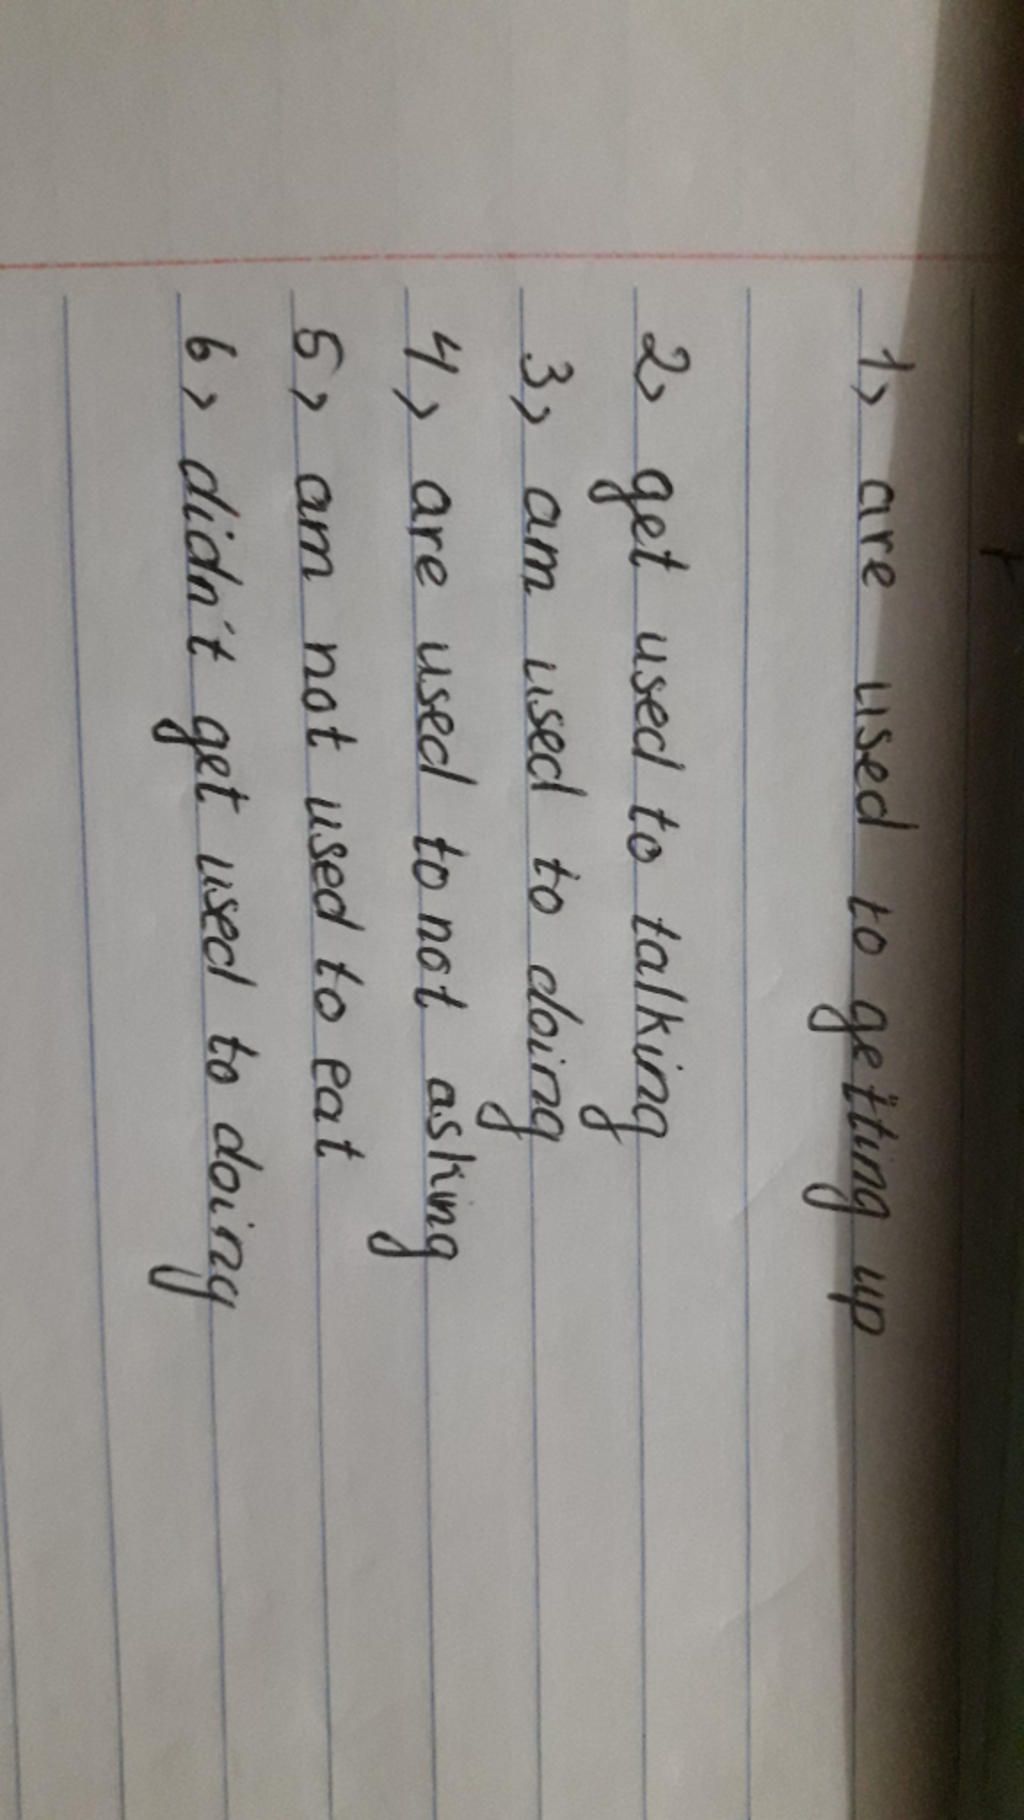 1> are used to getting up
2> get used to talking
3> am used to doing
4> are used to not asking
5> am not used to eat
6> didn't get used to doing